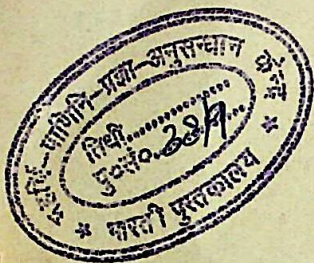 महर्षि-पाणिनि-प्रज्ञा-अनुसन्धान केन्द्र
तिथी..................
पु०सं०.38/9....
* भारती पुस्तकालय *